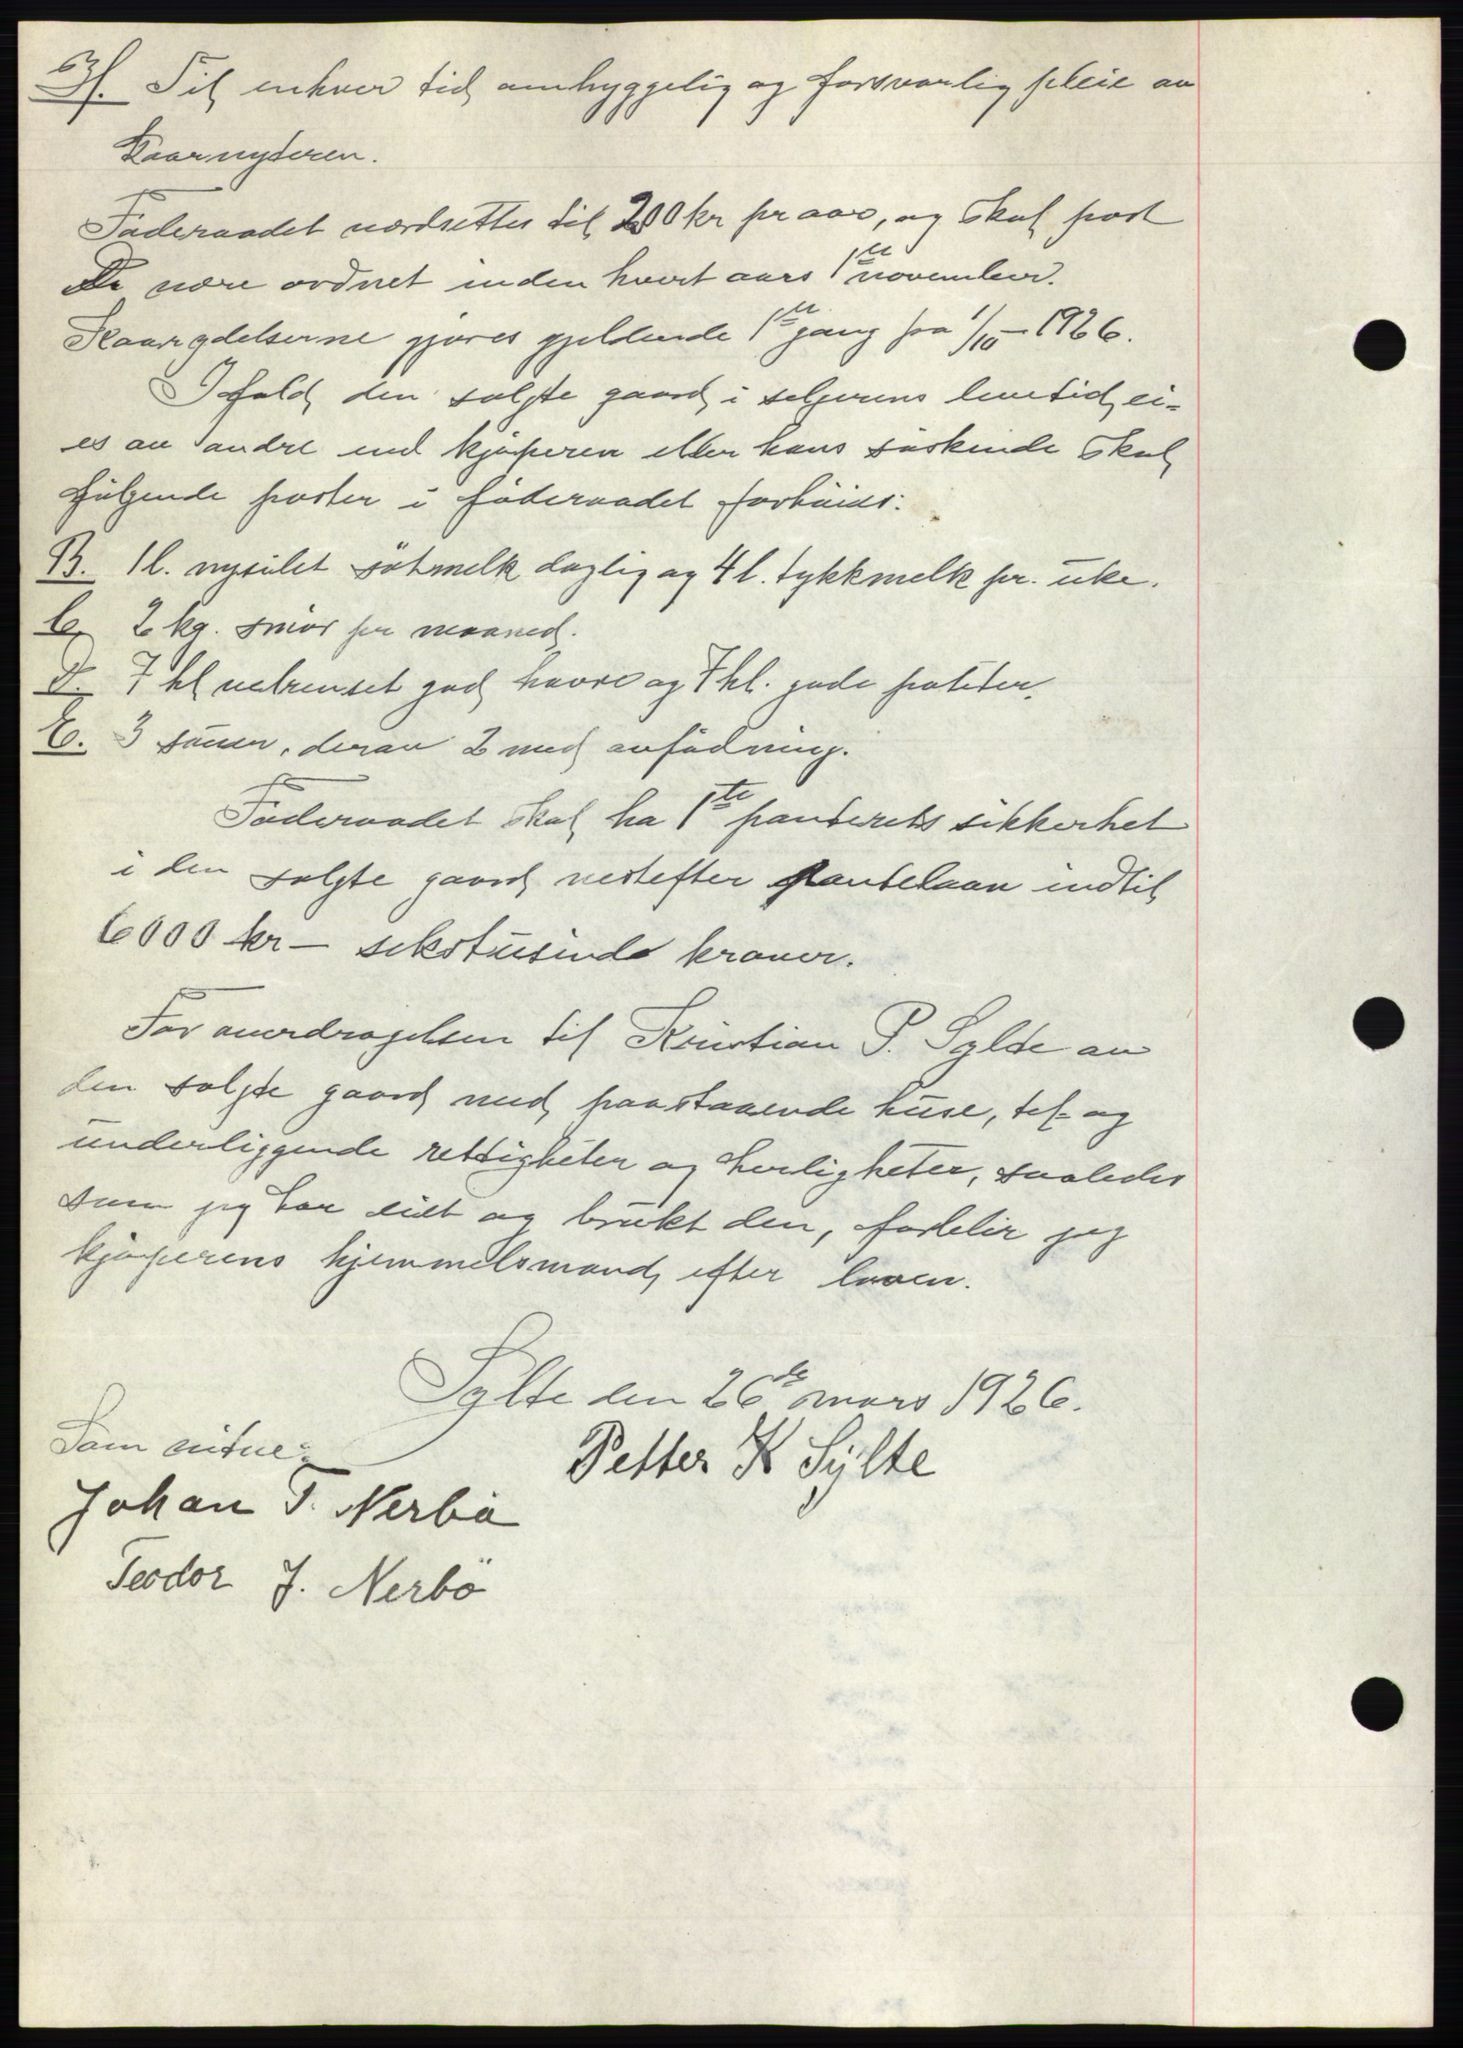 H. Til enhver tid omhyggelig og forsvarlig pleie av
Kaarnyteren.
Føderaadet værdsettes til 200 kr pr aar, og skal post
være ordnet inden hvert aars 1ste november.
Kaarydelserne gjøres gjeldende 1ste gang fra 1/10 - 1926.
Ifald den solgte gaard i selgerens levetid ei-
es av andre end kjøperen eller hans søskende skal
følgende poster i føderaadet forhøies:
B. 1 l. nysilet søtmelk daglig og 4 l. tykkmelk pr. uke.
C. 2 kg. smør pr maaned.
D. 7 hl velrenset god havre og 7 hl. gode poteter.
E. 3 sauer, derav 2 med avfødning.
Føderaadet skal ha 1ste panterets sikkerhet
i den solgte gaard nestefter pantelaan indtil
6000 kr – sekstusinde kroner.
For overdragelsen til Kristian P. Sylte av
den solgte gaard med paastaaende huse, til- og
underliggende rettigheter og herligheter, saaledes
som jeg har eiet og brukt den, forblir jeg
kjøperens hjemmelsmand efter loven.
Sylte den 26de mars 1926.
Som vitne:
Petter K Sylte
Johan T. Nerbö
Teodor J. Nerbö